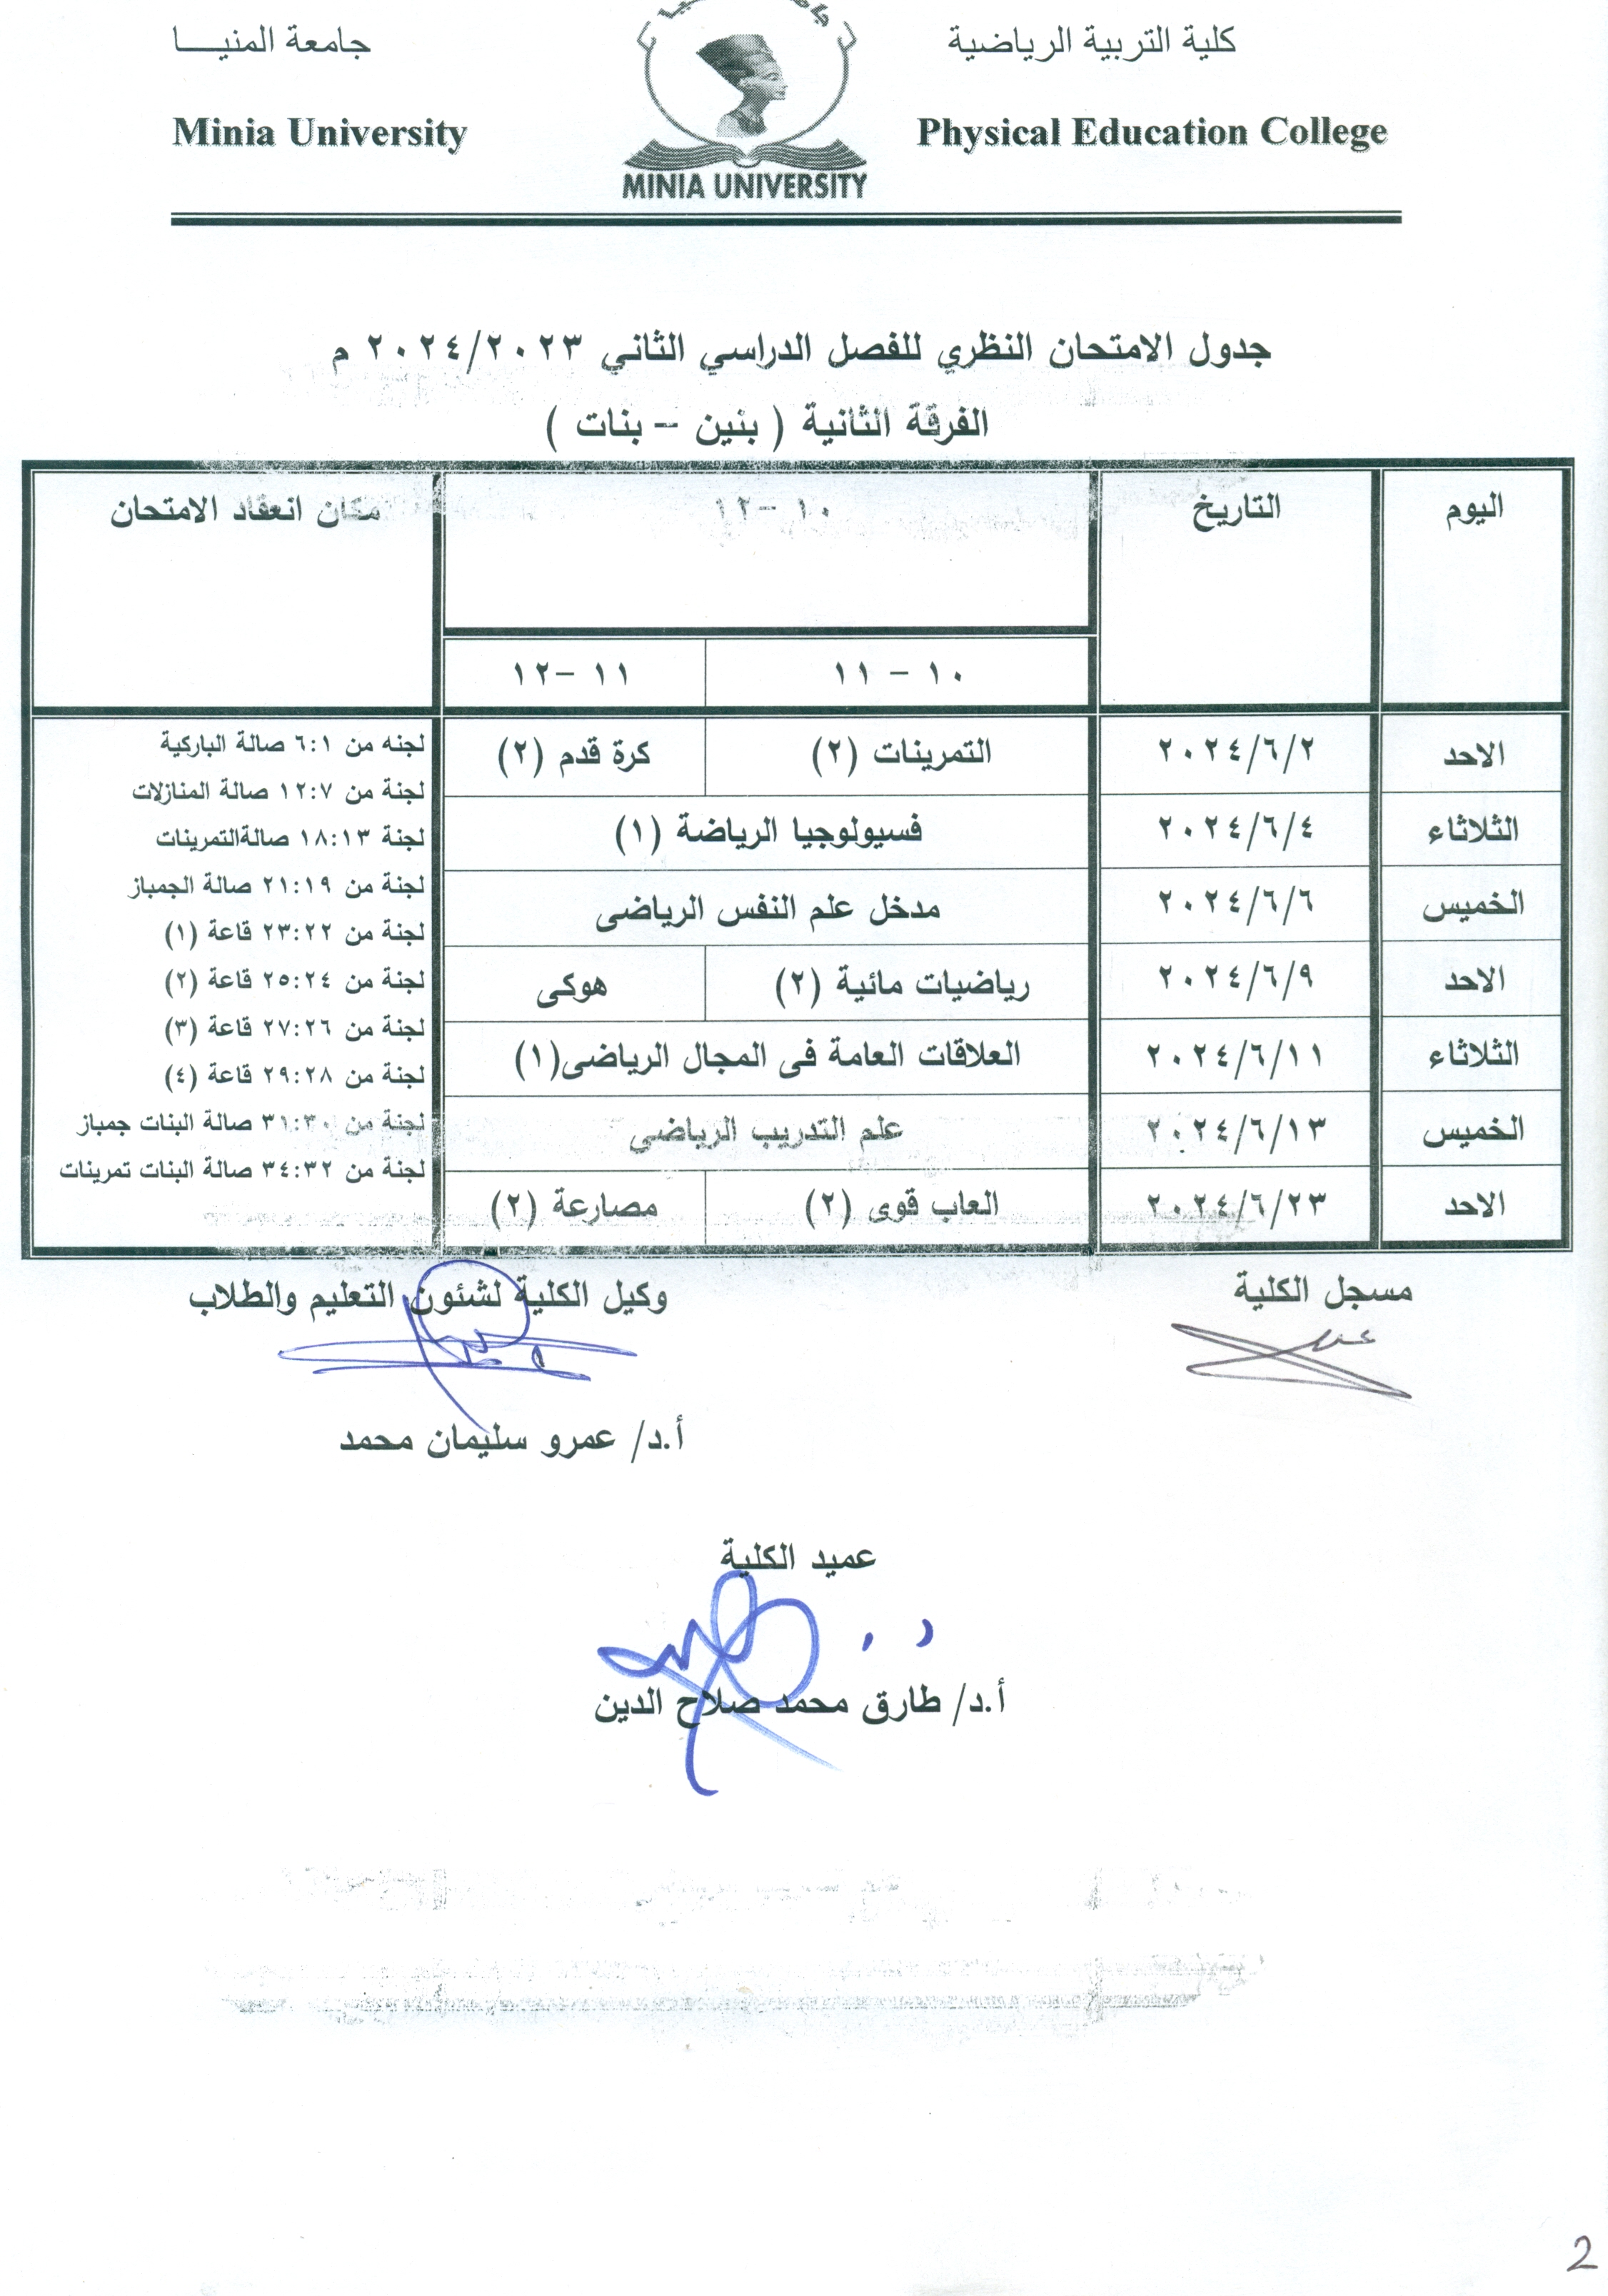 كلية التربية الرياضية
جامعة المنيـــــا
Physical Education College
Minia University
MINIA UNIVERSITY
جدول الامتحان النظري للفصل الدراسي الثاني ٢٠٢٤/٢٠٢٣ م
الفرقة الثانية ( بنين – بنات )
اليوم
التاريخ
١٠ –١٢
مكان انعقاد الامتحان
١٠ – ١١
١١ –١٢
الاحد
٢٠٢٤/٦/٢
التمرينات (٢)
كرة قدم (٢)
الثلاثاء
٢٠٢٤/٦/٤
فسيولوجيا الرياضة (١)
الخميس
٢٠٢٤/٦/٦
مدخل علم النفس الرياضى
الاحد
٢٠٢٤/٦/٩
رياضيات مائية (٢)
هوكى
الثلاثاء
٢٠٢٤/٦/١١
العلاقات العامة فى المجال الرياضى(١)
الخميس
٢٠٢٤/٦/١٣
علم التدريب الرياضى
الاحد
٢٠٢٤/٦/٢٣
العاب قوى (٢)
مصارعة (٢)
لجنه من ٦:١ صالة الباركية
لجنة من ١٢:٧ صالة المنازلات
لجنة ١٨:١٣ صالةالتمرينات
لجنة من ٢١:١٩ صالة الجمباز
لجنة من ٢٣:٢٢ قاعة (١)
لجنة من ٢٥:٢٤ قاعة (٢)
لجنة من ٢٧:٢٦ قاعة (٣)
لجنة من ٢٩:٢٨ قاعة (٤)
لجنة من ٣١:٣٠ صالة البنات جمباز
لجنة من ٣٤:٣٢ صالة البنات تمرينات
مسجل الكلية
وكيل الكلية لشئون التعليم والطلاب
أ.د/ عمرو سليمان محمد
عميد الكلية
أ.د/ طارق محمد صلاح الدين
2